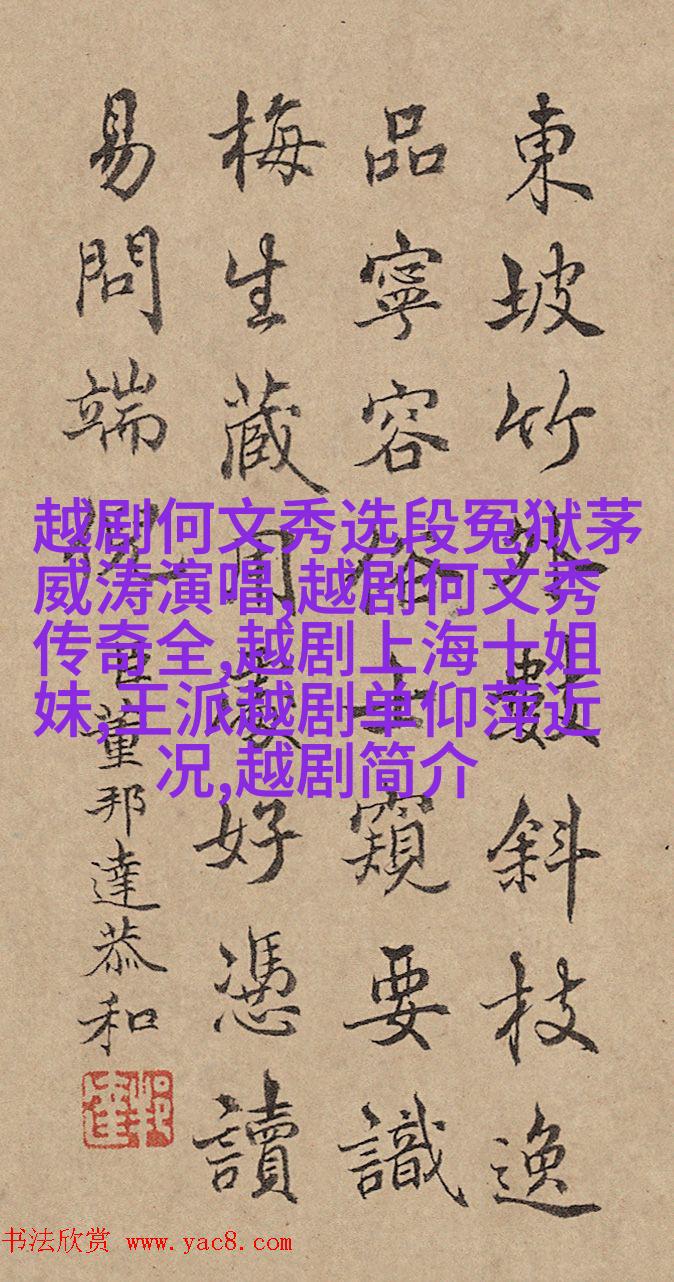 東坡竹外數斜枝逸
品寧容俗士窺要識
梅生藏用處好憑讀
易問端倪臣董邦達恭和
越剧何文秀选段冤狱茅
威涛演唱,越剧何文秀
传奇全,越剧上海十姐
妹,王派越剧单仰萍近
况,越剧简介
书法欣赏 www.yac8.com